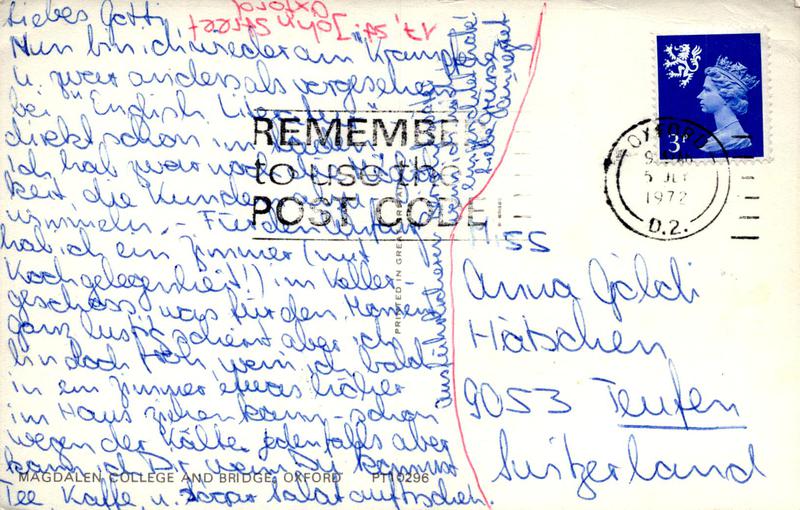 17, St. John Street
Oxford
Liebes Gotti,
Nun bin ich wieder am Kämpfen
u. zwar anders als vorgesehen
bei "English
direkt schon im
ich hab zwar noch
keit die Kunden
- Für den Anfang
hab ich ein Zimmer (mit
Kochgelegenheit!) im Keller-
geschoss, was für den Moment
ganz lustig scheint aber ich
bin doch froh, wenn ich bald
in ein Zimmer etwas höher
im Haus ziehen kann - schon
wegen der Kälte. Jedenfalls aber
kann ich Dir wenn Du kommst
Tee, Kaffe, u. sogar Salat auftischen.
ausführlicherer
liebe Grüsse
MAGDALEN COLLEGE AND BRIDGE, OXFORD PT10296
PRINTED IN GREAT
REMEMBER
to use the
POST CODE
OXFORD
5
1972
D.2.
3P
Miss
Anna Göldi
Hätschen
9053 Teufen
Switzerland